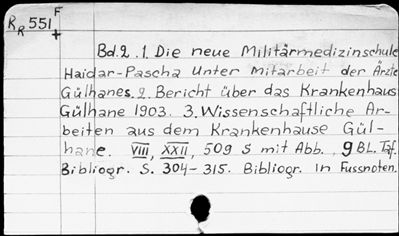 R_R 551 F +
Bd.2. 1. Die neue Militärmedizinschule
Haidar-Pascha unter Mitarbeit der Ärzte
Gülhanes. 2. Bericht über das Krankenhaus
Gülhane 1903. 3. Wissenschaftliche Ar-
beiten aus dem Krankenhause Gül-
hane. VIII, XXII, 509 S mit Abb. 9 BL. Taf.
Bibliogr. S. 304-315. Bibliogr. in Fussnoten.